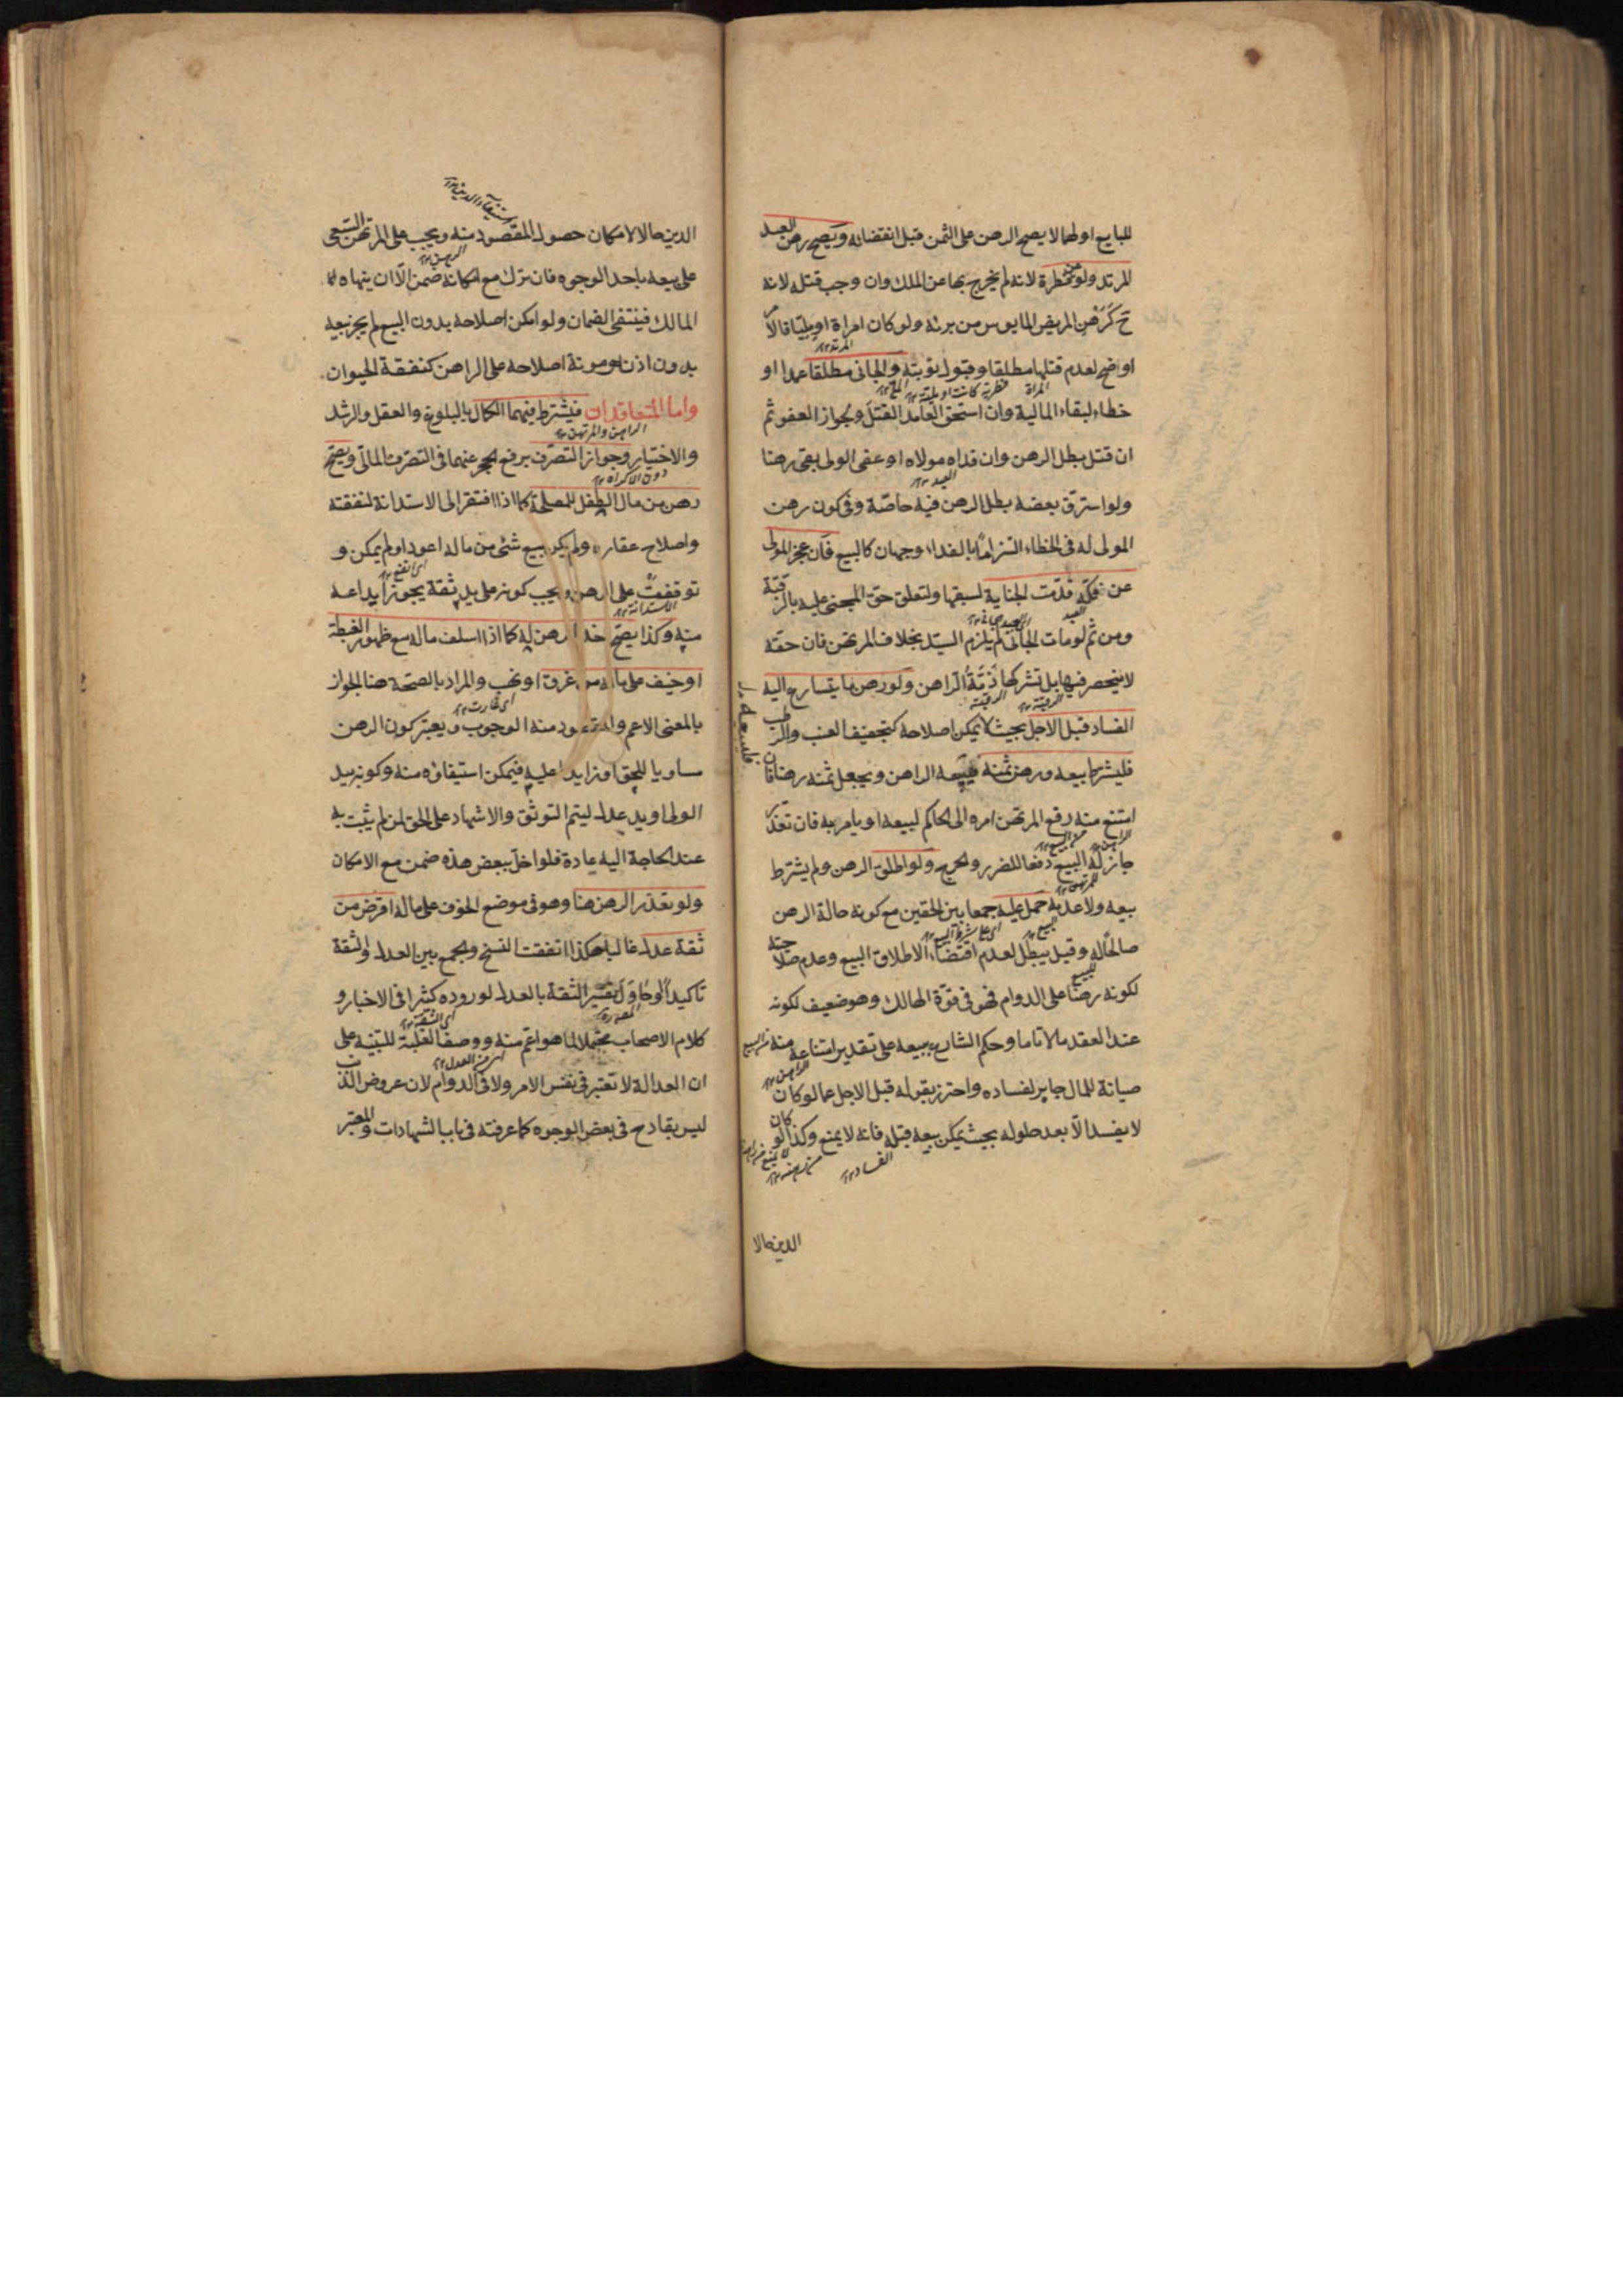 للبايع اولهما لا يصح الرهن على الثمن قبل انقضائه ويصح رهن العبد
المرتد ولو عن فطرة لانه لم يخرج بها عن الملك وان وجب قتله لانه
ح كرهن المريض المايوس من برئه ولو كان امراة او مليا فالامر
المرتد ١٢
اوضح لعدم قتلها مطلقا وقبول توبته والجانى مطلقا عمدا او
المراة فطرية كانت او ملية ١٢
خطاء لبقاء المالية وان استحق العامد القتل ولجواز العفو ثم
ان قتل بطل الرهن وان فداه مولاه او عفى الولى بقى رهنا
العبد ١٢
ولو استرق بعضه بطل الرهن فيه خاصة وفى كون رهن
المولى له فى الخطاء التزاما بالفداء وجهان كالبيع فان عجز المولى
عن فكه قدمت الجناية لسبقها ولتعلق حق المجنى عليه بالرقبة
العبد
ومن ثم لو مات الجانى لم يلزم السيد بخلاف المرتهن فان حقه
لا ينحصر فيها بل تشركها ذمة الراهن ولو رهن ما يتسارع اليه
الرقبة ١٢ الرقبة
الفساد قبل الاجل بحيث لا يمكن اصلاحه كتجفيف العنب والرطب
فليشترط بيعه ورهن ثمنه فيبيعه الراهن ويجعل ثمنه رهنا فان
امتنع منه رفع المرتهن امره الى الحاكم ليبيعه او يامر به فان تعذر
الراهن من البيع ١٢
جاز له البيع دفعا للضرر والحرج ولو اطلق الرهن ولم يشترط
المرتهن ١٢
بيعه ولا عدمه حمل عليه جمعا بين الحقين مع كونه حالة الرهن
للبيع ١٢ اى على شرط البيع ١٢
صالحا له وقيل يبطل لعدم اقتضاء الاطلاق البيع وعدم صلاحيته
للبيع
لكونه رهنا على الدوام فهو فى قوة الهالك وهو ضعيف لكونه
عند العقد مالا تاما وحكم الشارع ببيعه على تقدير امتناعه منه
من البيع
الراهن ١٢
صيانة للمال جابر لفساده واحترز بقوله قبل الاجل عما لو كان
لا يفسد الا بعد حلوله بحيث يمكن بيعه قبله فانه لا يمنع وكذا لو كان
الفساد ١٢ من رهنه ١٢
الدين حالا
استيفاء الدين ١٢
الدين حالا لامكان حصول المقصود منه ويجب على المرتهن السعى
الرهن ١٢
على بيعه باحد الوجوه فان ترك مع امكانه ضمن الا ان ينهاه
المالك فينتفى الضمان ولو امكن اصلاحه بدون البيع لم يجز بيعه
بدون اذنه ومونة اصلاحه على الراهن كنفقة الحيوان
واما المتعاقدان فيشترط فيهما الكمال بالبلوغ والعقل والرشد
الراهن والمرتهن ١٢
والاختيار وجواز التصرف برفع الحجر عنهما فى التصرف المالى ويصح
دون الاكراه ١٢
رهن من مال الطفل للمصلحة كما اذا افتقر الى الاستدانة لنفقته
واصلاح عقاره ولم يكن بيع شئ من ماله اعود او لم يمكن و
اى انفع ١٢
توقفت على الرهن ويجب كونه على يد ثقة يجوز ايداعه
الاستدانة ١٢
منه وكذا يصح اخذ الرهن له كما اذا اسلف ماله مع ظهور الغبطة
او خيف على ماله من غرق او نهب والمراد بالصحة هنا الجواز
اى غارت ١٢
بالمعنى الاعم والمقصود منه الوجوب ويعتبر كون الرهن
مساويا للحق او زايدا عليه فيمكن استيفاؤه منه وكونه بيد
الولى او يد عدل ليتم التوثق والاشهاد على الحق لمن لم يثبت به
عند الحاجة اليه عادة فلو اخل ببعض هذه ضمن مع الامكان
ولو تعذر الرهن هنا وهو فى موضع الخوف على ماله اقرض من
ثقة عدل غالبا هكذا اتفقت النسخ والجمع بين العدل والثقة
تاكيد او حاول تفسير الثقة بالعدل لوروده كثيرا فى الاخبار و
المصنف رو اى الثقة ١٢
كلام الاصحاب محتملا لما هو اعم منه ووصف الغلبة للتنبيه على
من العدل ١٢
ان العدالة لا تعتبر فى نفس الامر ولا فى الدوام لان عروض الذنب
ليس بقادح فى بعض الوجوه كما عرفته فى باب الشهادات والمعتبر